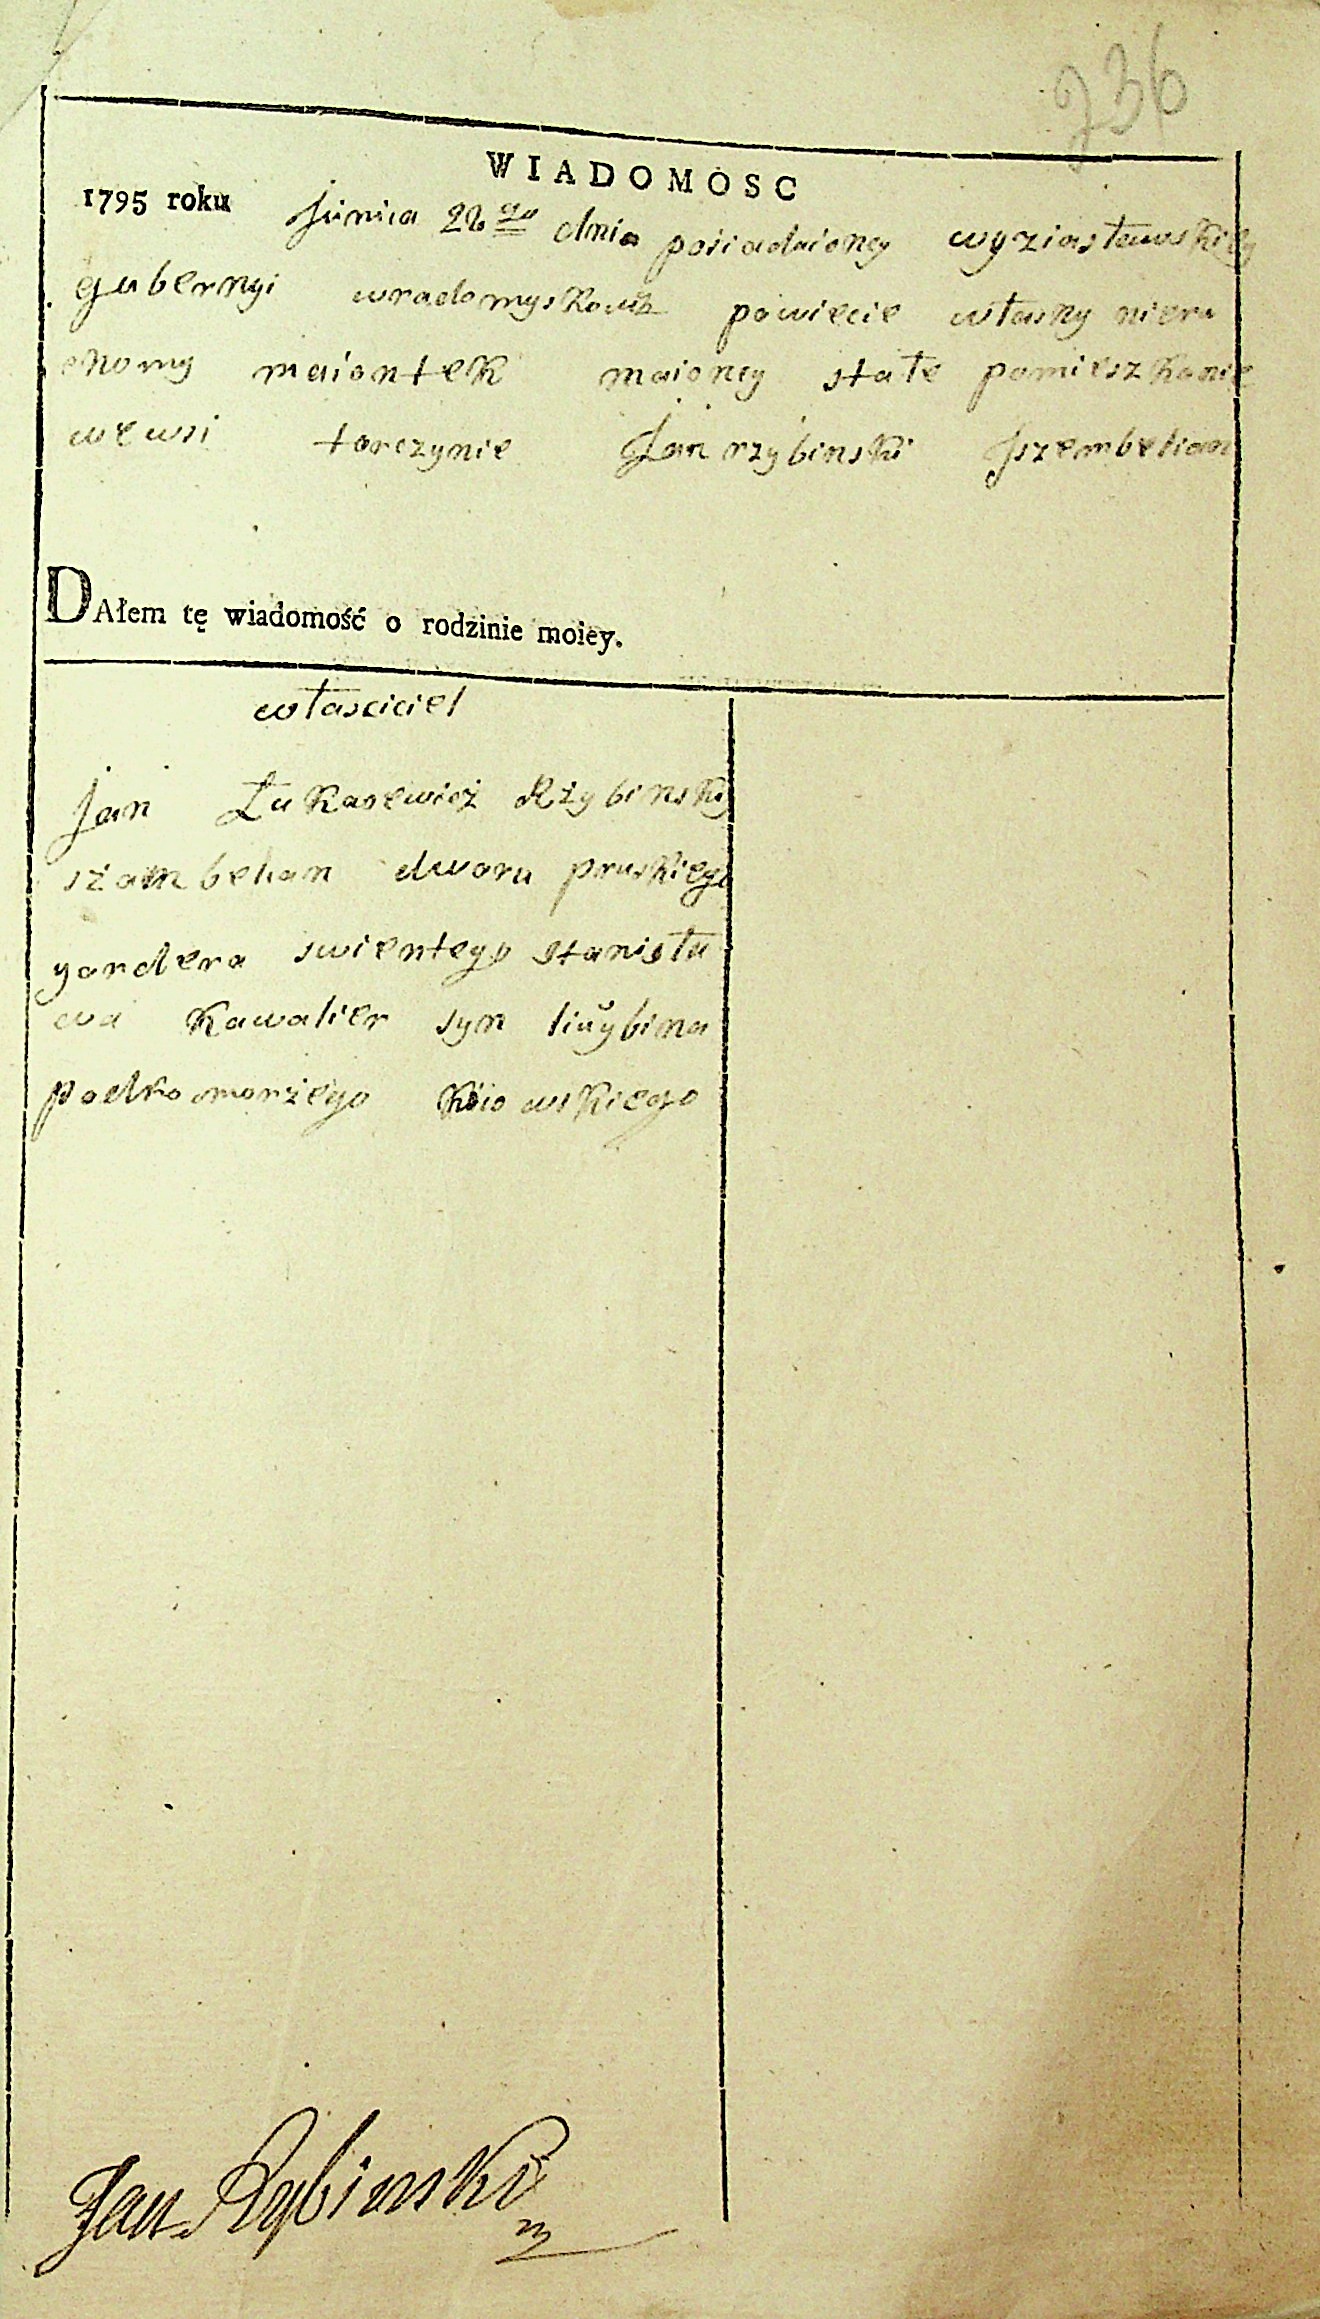 236
WIADOMOSC
1795 roku Junia 22go dnia posiadaioncy wyziasławskiey
gubernyi wradomyskowem powiecie własny nieru
chomy maiontek maioncy stałe pomieszkanie
wewsi torczynie Jan rzybinski szembelian
DAłem tę wiadomość o rodzinie moiey.
własciciel
jan Łukasewicz Rżybinsky
szambelian dworu pruskiego
yordera swientego stanisła
wa Kawalier syn
podkomorżego Kiiowskiego
Jan Rybinski